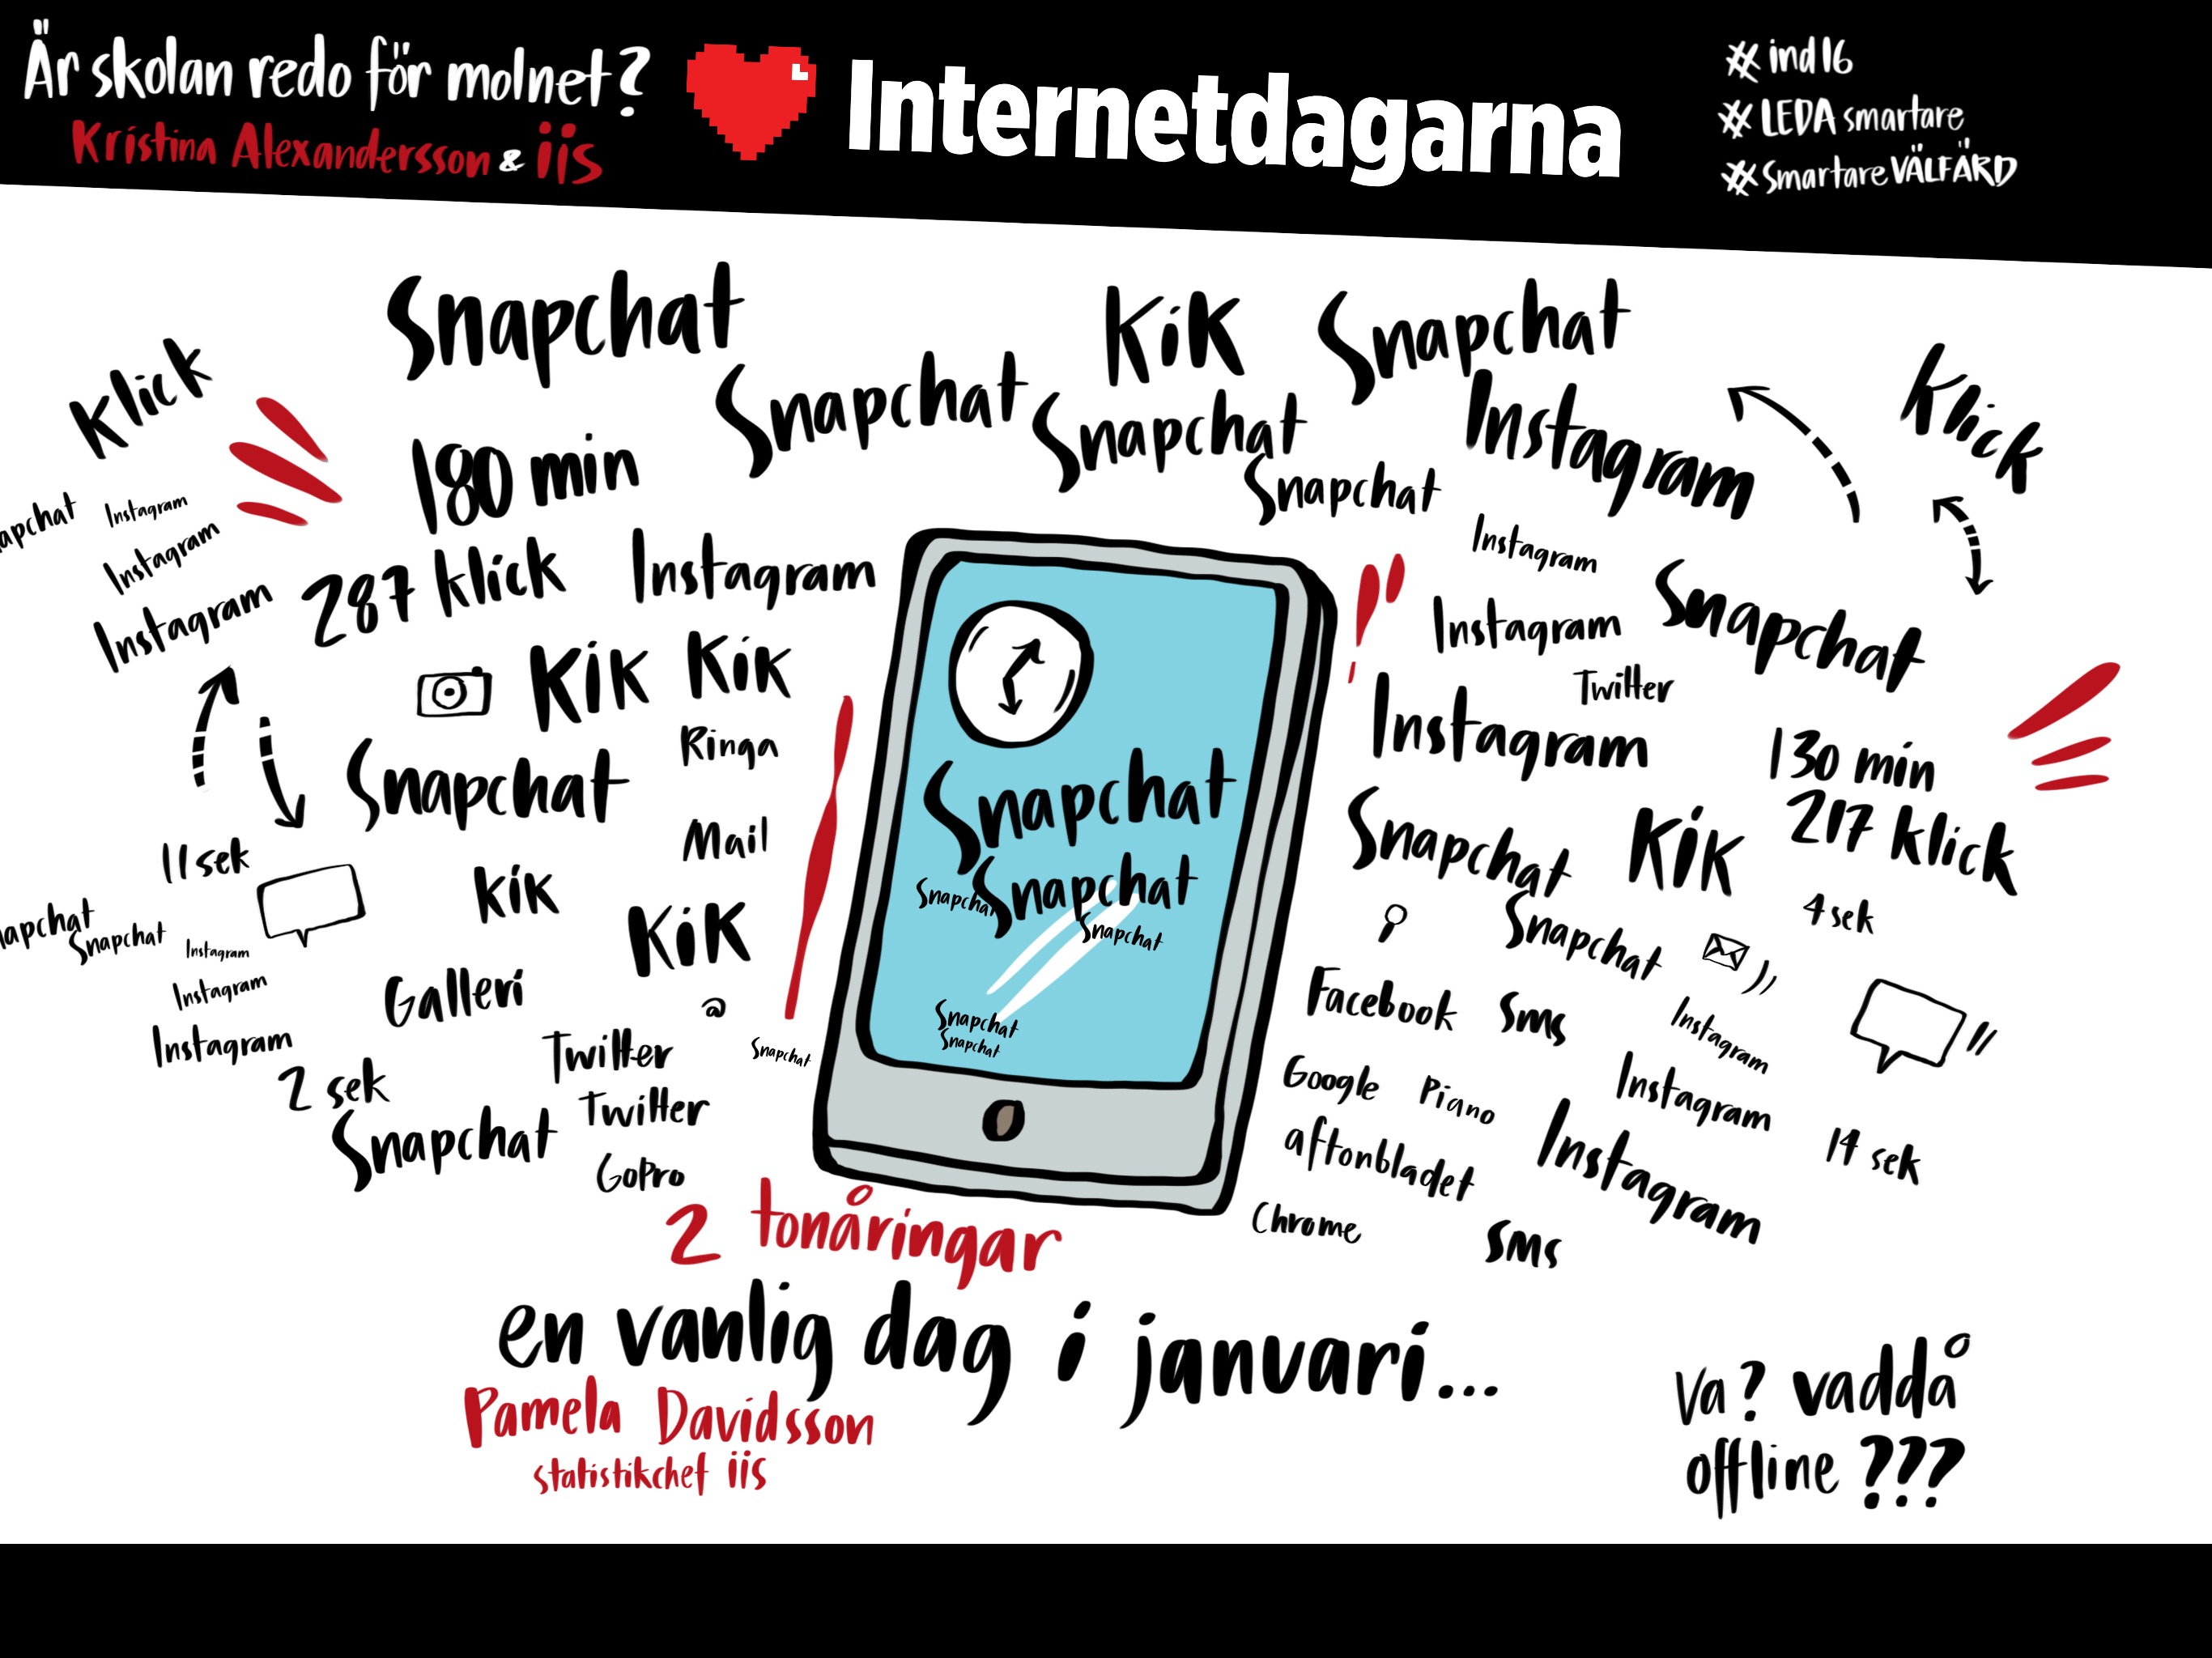 Är skolan redo för molnet?
Kristina Alexandersson & iis
Internetdagarna
# ind16
# LEDA smartare
# Smartare VÄLFÄRD
Snapchat
Kik
Snapchat
Klick
Snapchat
Snapchat
Snapchat
Instagram
Klick
180 min
apchat
Instagram
Instagram
Instagram
287 klick
Instagram
Instagram
Instagram
Snapchat
Kik
Kik
Twitter
Instagram
Ringa
Snapchat
130 min
217 klick
Mail
Snapchat
Kik
11 sek
Kik
4 sek
Snapchat
Snapchat
Snapchat
Snapchat
Snapchat
Snapchat
Snapchat
apchat
Snapchat
Instagram
Instagram
Instagram
Kik
Galleri
@
Twitter
Snapchat
2 sek
Snapchat
Twitter
GoPro
Facebook
Sms
Instagram
Google
Piano
Instagram
aftonbladet
Instagram
14 sek
Chrome
Sms
2 tonåringar
en vanlig dag i januari...
Pamela Davidsson
statistikchef iis
Va? vaddå
offline ???